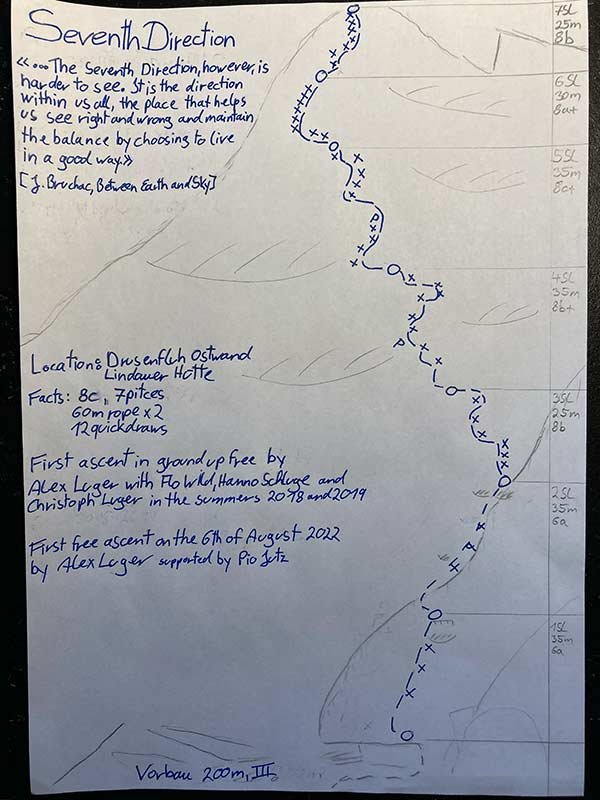 Seventh Direction
«...The Seventh Direction, however, is
harder to see. It is the direction
within us all, the place that helps
us see right and wrong and maintain
the balance by choosing to live
in a good way.»
[J. Bruchac, Between Earth and Sky]
Location: Drusenfluh Ostwand
Lindauer Hütte
Facts: 8c, 7 pitces
60m rope x 2
12 quickdraws
First ascent in ground up free by
Alex Luger with Flo Wild, Hanno Schluge and
Christoph Luger in the summers 2018 and 2019
First free ascent on the 6th of August 2022
by Alex Luger supported by Pio Jutz
7SL
25m
8b
6SL
30m
8a+
5SL
35m
8c+
4SL
35m
8b+
3SL
25m
8b
2SL
35m
6a
1SL
35m
6a
Vorbau 200m, III.